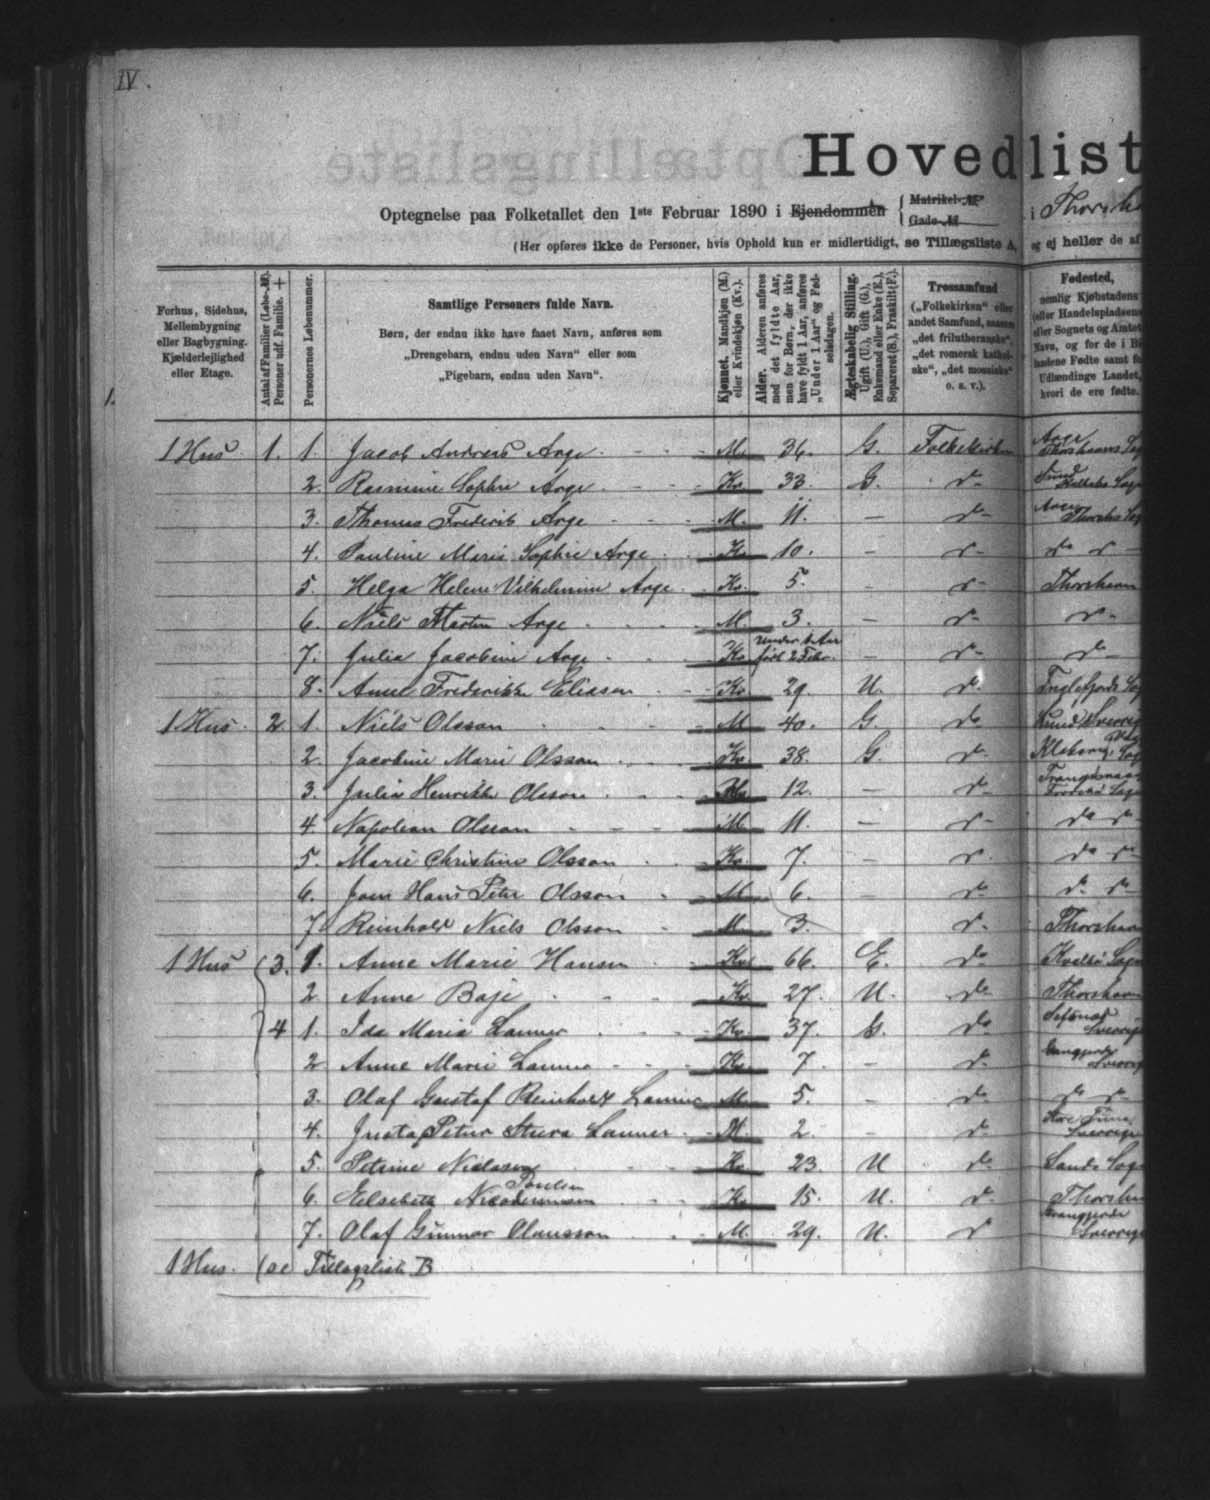 IV.
Hovedlist
Optegnelse paa Folketallet den 1ste Februar 1890 i Ejendommen { Matrikel-№ Gade-№ i Thorsha
(Her opføres ikke de Personer, hvis Ophold kun er midlertidigt, se Tillægsliste A, og ej heller de af
Forhus, Sidehus, Mellembygning eller Bagbygning. Kjælderlejlighed eller Etage.
Antal af Familier (Løbe-№). Personer udf. Familie. +
Personernes Løbenummer.
Samtlige Personers fulde Navn.
Børn, der endnu ikke have faaet Navn, anføres som
„Drengebarn, endnu uden Navn“ eller som
„Pigebarn, endnu uden Navn“.
Kjønnet. Mandkjøn (M.) eller Kvindekjøn (Kv.).
Alder. Alderen anføres med det fyldte Aar, men for Børn, der ikke have fyldt 1 Aar, anføres „Under 1 Aar“ og Fødselsdagen.
Ægteskabelig Stilling. Ugift (U.), Gift (G.), Enkemand eller Enke (E.), Separeret (S.), Fraskilt (F.).
Trossamfund („Folkekirken“ eller andet Samfund, saasom „det frilutheranske“, „det romersk katholske“, „det mosaiske“ o. s. v.).
Fødested, nemlig Kjøbstadens eller Handelspladsens eller Sognets og Amtets Navn, og for de i Bi landene Fødte samt fo Udlændinge Landet, hvori de ere fødte.
1.
1 Hus 1. 1. Jacob Andreas Arge M. 36. G. Folkekirken Arge Thorshavns Sog
2. Rasmine Sophie Arge Kv. 33. G. do Sund Kolbaks Sogn
3. Thomas Frederik Arge M. 11. — do Arge Thorshs Sog
4. Pauline Marie Sophie Arge Kv. 10. — do do do
5. Helga Helene Vilhelmine Arge Kv. 5. do Thorshavn
6. Niels Martin Arge M. 3. — do do
7. Julia Jacobine Arge Kv. under 1 Aar født 2 Febr. — do do
8. Anne Frederikke Eliasen Kv. 29. U. do Fuglefjords Sog
1 Hus 2. 1. Niels Olsson M 40. G. do Lund Sverrig
2. Jacobine Marie Olsson Kv. 38. G. do
3. Julia Henrikke Olsson Kv. 12. — do Trangisvaag Frodebø Sogn
4. Napolean Olsson M. 11. — do do do
5. Marie Christine Olsson Kv. 7. — do do do
6. Joen Hans Peter Olsson M 6. — do do do
7 Reinhold Niels Olsson M. 3. do Thorshavn
1 Hus (3. 1. Anne Marie Hansen Kv. 66. E. do Kvalbø Sogn
2 Anne Baje Kv. 27. U. do Thorshavn
4 1. Ida Maria Lanner Kv. 37. G. do Sverrige
2 Anne Marie Lanner Kv. 7 — do Sverrig
3. Olaf Gustaf Reinholdt Lanner M. 5. — do do do
4. Gustaf Petur Stura Lanner M. 2. — do Sverrige
5. Petrine Nielasen Kv. 23. U do Sands Sogn
6. Elsebeth Poulsen Kv. 15. U. do Thorshavn
7. Olaf Gunnar Claussen M. 29. U. do Sverrige
1 Hus. (se Tillægsliste B